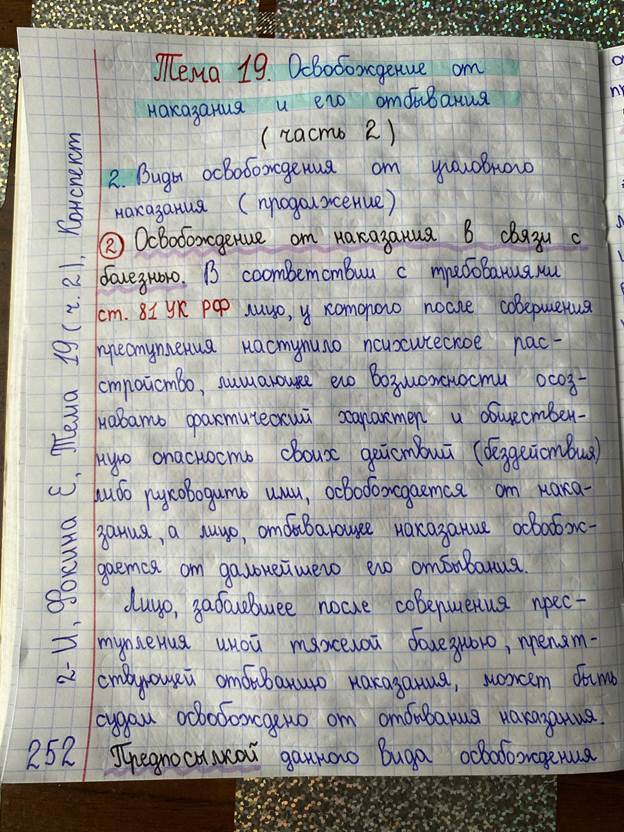 Тема 19. Освобождение от
наказания и его отбывания
(часть 2)
2. Виды освобождения от уголовного
наказания (продолжение)
② Освобождение от наказания в связи с
болезнью. В соответствии с требованиями
ст. 81 УК РФ лицо, у которого после совершения
преступления наступило психическое рас-
стройство, лишающее его возможности осоз-
навать фактический характер и обществен-
ную опасность своих действий (бездействия)
либо руководить ими, освобождается от нака-
зания, а лицо, отбывающее наказание освобож-
дается от дальнейшего его отбывания.
Лицо, заболевшее после совершения прес-
тупления иной тяжелой болезнью, препят-
ствующей отбыванию наказания, может быть
судом освобождено от отбывания наказания.
Предпосылкой данного вида освобождения
252
2-И, Фокина Е, Тема 19 (ч. 2), Конспект